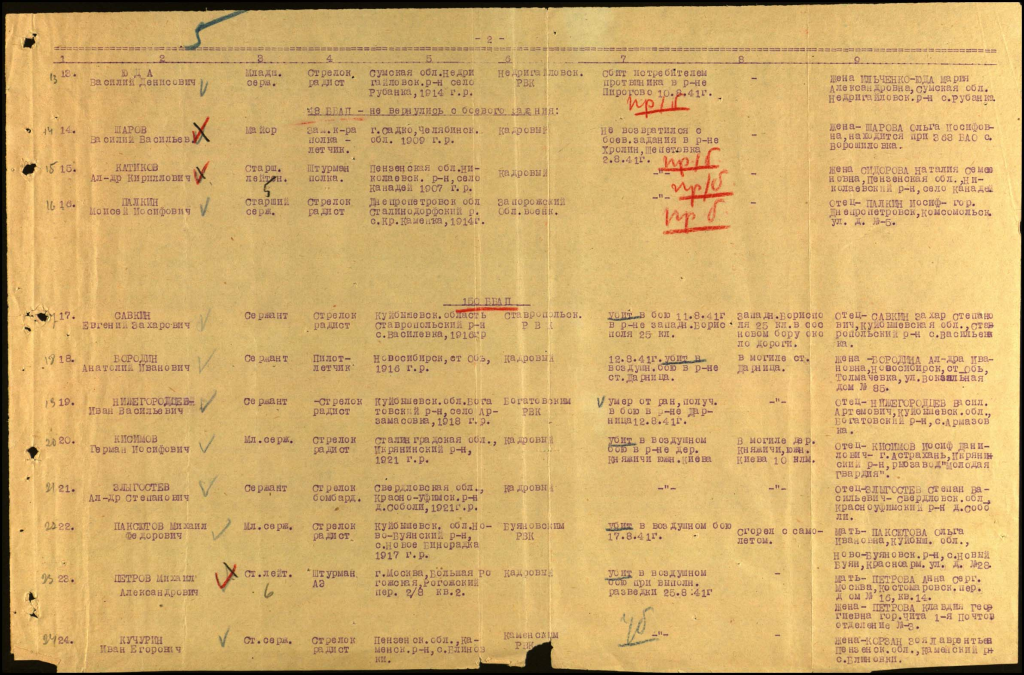 - 2 -
1 2 3 4 5 6 7 8 9
13. ЮДА Младш. Стрелок Сумская обл.Недри Недригайловск. Сбит истребителем - Жена ИЛЬЧЕНКО-ЮДА Мария
Василий Денисович серж. радист гайловск.р-н село РВК противника в р-не Александровна, Сумская обл.
Рубанка, 1914 г.р. Пирогово 10.8.41г. Недригайловск.р-н с.Рубанка
пр/б
БАП - не вернулись с боевого задания:
14 14. ШАРОВ Майор Зам.к-ра г.Садко, Челябинск. Кадровый Не возвратился с - Жена- ШАРОВА Ольга Иосифов-
Василий Васильев полка - обл. 1909 г.р. боев.задания в р-не на, находится при 363 БАО с.
летчик. Хролин, Шепетовка Ворошиловка.
2.8.41г. пр/б
15 15. КАТИКОВ Старш. Штурман Пензенская обл.Ни- Кадровый -"- - Жена СИДОРОВА Наталия Семе
Ал-др Кириллович лейтен. полка. колаевск. р-н, село новна, Пензенская обл., Ни-
5 Канадей 1907 г.р. пр/б колаевский р-н, село Канадей
16 16. ПАЛКИН Старший Стрелок Днепропетровск обл Запорожский -"- - Отец- ПАЛКИН Иосиф- гор.
Моисей Иосифович серж. радист Сталиндорфский р. Обл.Военк. Днепропетровск, Комсомольск.
с.Кр.Каменка, 1914г. пр/б ул. д. №-5.
БАП
17. САВКИН Сержант Стрелок Куйбышевск.область Ставропольск. убит в бою 11.8.41г Западн.Бориспо Отец- САВКИН Захар Степано
Евгений Захарович радист Ставропольский р-н РВК в р-не западн.Борис ля 25 кл. в сос вич, Куйбышевская обл., Став
с.Василевка, 1916гр поля 25 кл. новом бору око ропольский р-н с.Васильев
ло дороги. ка.
18 18. БОРОДИН Сержант Пилот- Новосибирск, ст Обь, Кадровый 12.8.41г. убит в в могиле ст. Жена -БОРОДИНА Ал-дра Ива
Анатолий Иванович летчик 1916 г.р. воздушн. бою в р-не Дарница. новна, Новосибирск, ст Обь,
ст.Дарница. Толмачевка, ул.Вокзальная
дом № 85.
19 19. НИЖЕГОРОДЦЕВ Сержант -Стрелок Куйбышевск.обл.Бога Богатовским умер от ран, получ. -"- Отец- НИЖЕГОРОДЦЕВ Васил.
Иван Васильевич радист товский р-н, село Ар- РВК в бою в р-не Дар- Артемович, Куйбышевск.обл.,
замасовна, 1918 г.р. ница12.8.41г. Богатовский р-н, с.Армазов
ка.
20 20. КИСИМОВ Мл.серж. Стрелок Сталинградская обл., Кадровый Убит в воздушном В могиле дер. Отец- КИСИМОВ Иосиф Дани-
Герман Иосифович радист Икрянинский р-н, бою в р-не дер. Княжичи, южн. лович- г.Астрахань, Икрянин
1921 г.р. Княжичи южн.Киева Киева 10 клм. ский р-н, рыбзавод"Молодая
Гвардия".
21 21. ЗЛЫГОСТЕВ Сержант Стрелок Свердловская обл., Кадровый -"- -"- Отец-ЗЛЫГОСТЕВ Степан Ва-
Ал-др Степанович бомбард. Красно-уфимск.р-н сильевич- Свердловск.обл.
д.Соболи, 1921г.р. Красноуфимский р-н д.Собо
ли.
22 22. ПАКСЕТОВ Михаил Мл.серж. Стрелок Куйбышевск. обл.Но- Буяновским Убит в воздушном бою Сгорел с само- Мать- ПАКСЕТОВА Ольга
Федорович радист во-Буянский р-н, РВК 17.8.41г. летом. Ивановна, Куйбыш. обл.,
с.Новое Бинорадка Ново-Буяновск.р-н, с.Новый
1917 г.р. Буян, Красноарм. ул. д. №28.
23 23. ПЕТРОВ Михаил Ст.лейт. Штурман г.Москва, Большая Ро Кадровый Убит в воздушном - Мать- ПЕТРОВА Анна Серг.
Александрович 6 АЭ гожская, Рогожский бою при выполн. Москва, Костомаровск.пер.
пер. 2/8 кв.2. разведки 25.8.41г дом № 16, кв.14.
Жена- ПЕТРОВА Клавдия Геор
гиевна гор.Чита 1-я Почтов
отделение №-3.
24 24. КУЧУРИН Ст.серж. Стрелок Пензенск.обл., Ка- Каменским уб -"- - Жена-КОРЗАН Зоя Лаврентьев
Иван Егорович радист менск.р-н, с.Блинов РВК Пензенск.обл., Каменский р-н
ки. с.Блиновки.